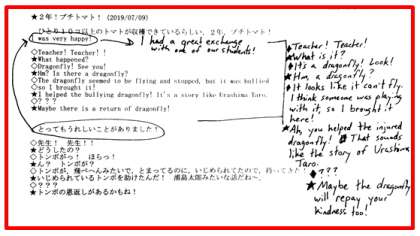 ★２年！プチトマト！ (2019/07/09)
ひとり１０コ以上のトマトが収穫できているらしい、２年、プチトマト！
was very happy!
I had a great exchange
with one of our students!
◇Teacher! Teacher!
★What happened?
◇Dragonfly! See you!
★Hm? Is there a dragonfly?
◇The dragonfly seemed to be flying and stopped, but it was bullied
◇so I brought it!
★I helped the bullying dragonfly! It's a story like Urashima Taro.
◇？？？
★Maybe there is a return of dragonfly!
とってもうれしいことがありました！
◇先生！　先生！！
★どうしたの？
◇トンボがっ！　ほらっ！
★ん？　トンボが？
◇トンボが、飛べへんみたいで、とまってるのに、いじめられてたので、持ってきた！
★いじめられているトンボを助けたんだ！　浦島太郎みたいな話だね～。
◇？？？？
★トンボの恩返しがあるかもね！
Teacher! Teacher!
★What is it?
It's a dragonfly! Look!
★Hm, a dragonfly?
It looks like it can't fly.
I think someone was playing
with it, so I brought it
here!
★Ah, you helped the injured
dragonfly! That sounds
like the story of Urashima
Taro.
???
★Maybe the dragonfly
will repay your
kindness too!